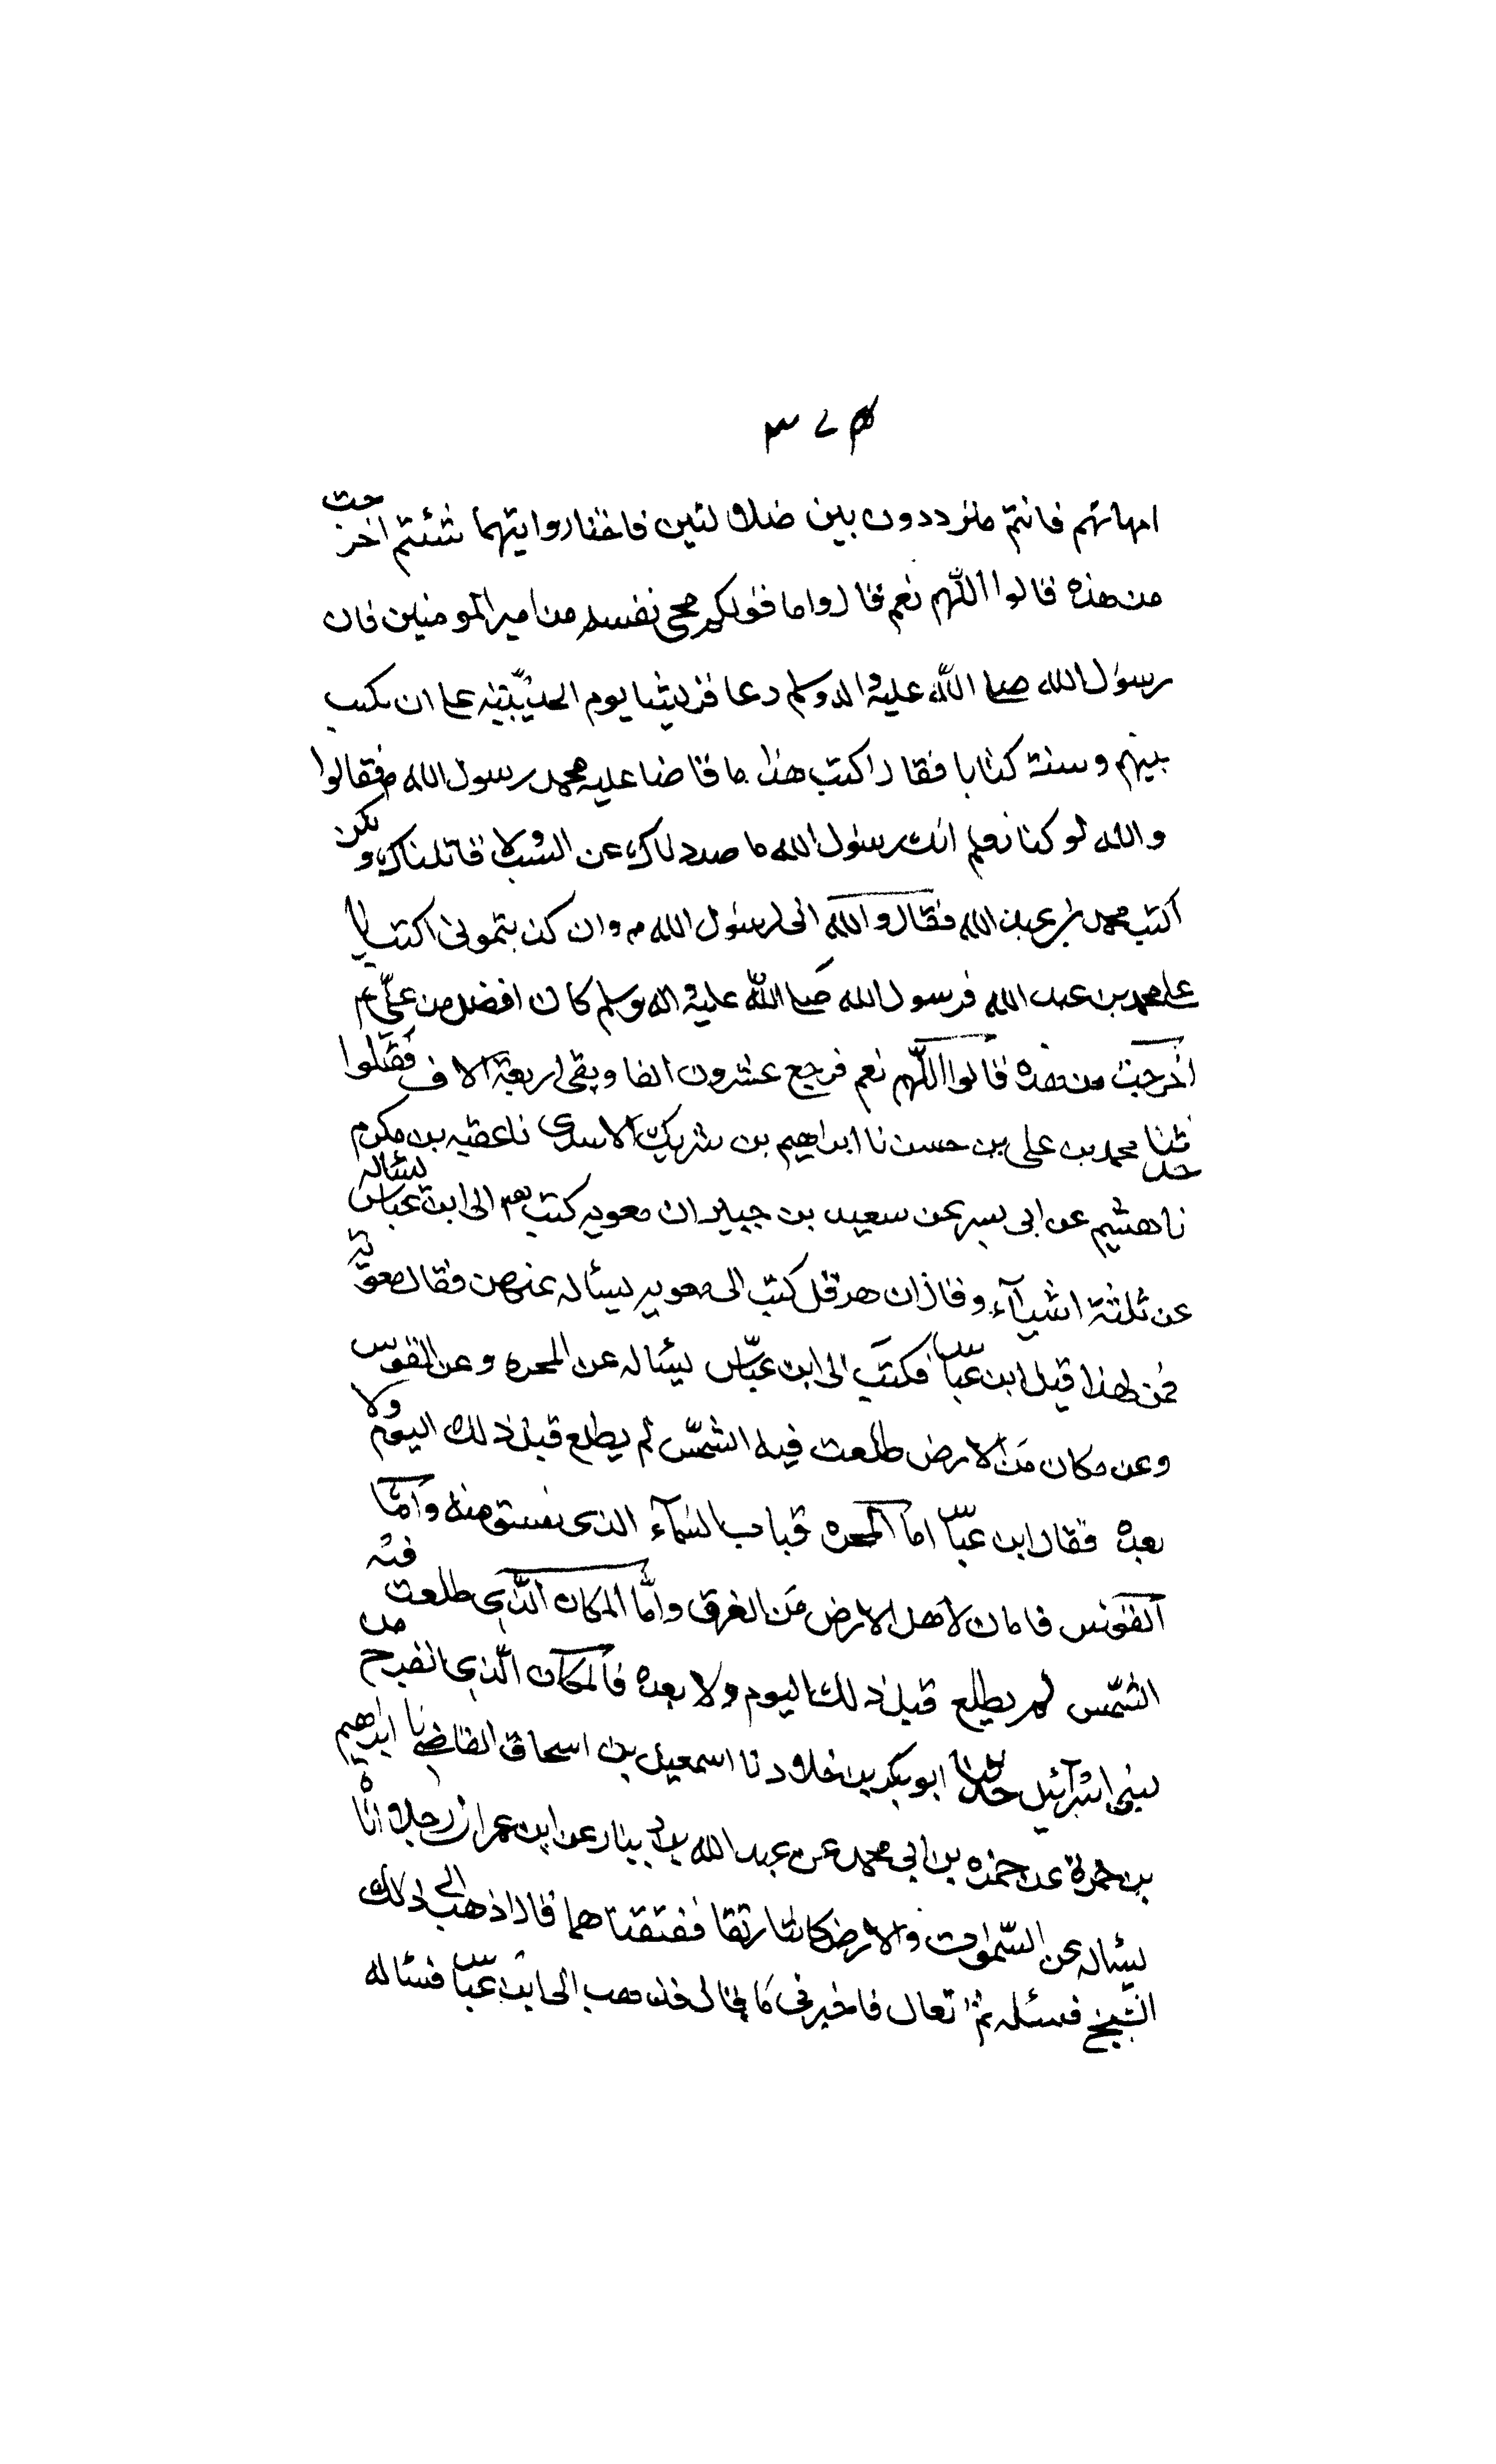 ٣٧٣
امهاتهم فانتم متردّدون بين ضلالتين فاختاروا ايتهما شئتم اخرجت
من هذه قالوا اللّهم نعم قال واما قولكم محى نفسه من امير المومنين فان
رسول الله صلى اللّه عليه واله وسلم دعا قريشا يوم الحديبيّة على ان يكتب
بينهم وبينه كتابا فقال اكتب هذا ما قاضا عليه محمد رسول الله فقالوا
والله لو كنا نعلم انك رسول الله ما صددناك عن البيت ولا قاتلناك ولكن
اكتب محمد بن عبد الله فقال والله انى لرسول الله وان كذبتمونى اكتب يا
على محمد بن عبد الله فرسول الله صلى اللّه عليه واله وسلم كان افضل من علىّ
اخرجت من هذه قالوا اللّهم نعم فرجع عشرون الفا وبقى اربعة الاف فقتلوا
حدثنا محمد بن على بن حسن نا ابراهيم بن شريك الاسدى نا عقبه بن مكرم
نا هشيم عن ابى بسر عن سعيد بن جبير ان معويه كتب الى ابن عباس يسئاله
عن ثلثة اشيآء وقال ان هرقل كتب الى معويه يسئاله عنهن فقال معوية
فمن لهذا قيل ابن عبّاس فكتب الى ابن عبّاس يسئاله عن المجره وعن القوس
وعن مكان من الارض طلعت فيه الشمس لم يطلع قبل ذلك اليوم ولا
بعده فقال ابن عبّاس اما المجره فباب السّمآء الذى تنشق منه وامّا
القوس فامان لاهل الارض من الغرق وامّا المكان الّذى طلعت فيه
الشمس لم يطلع قبل ذلك اليوم ولا بعده فالمكان الّذى انفرج من
بنى اسرآئيل حدثنا ابو بكر بن خلاد نا اسمعيل بن اسحاق القاضى نا ابراهيم
بن حمزة عن حمزه بن ابى محمد عن عبد الله بن دينار عن ابن عمر ان رجلا اتاه
يسئاله عن السّموات والارض كانتا رتقا ففتقناهما قال اذهب الى ذلك
الشيخ فسئله ثم تعال فاخبرنى ما قال فذهب الى ابن عبّاس فسئاله